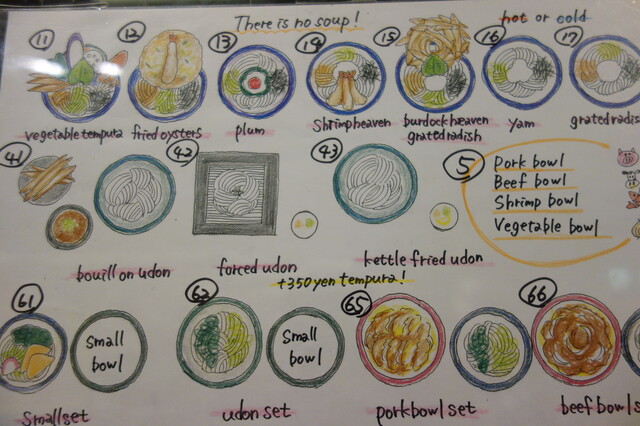 There is no soup!
hot or cold
11
12
13
14
15
16
17
vegetable tempura
fried oysters
plum
Shrimp heaven
burdock heaven
grated radish
yam
grated radis
41
42
43
5
Pork bowl
Beef bowl
Shrimp bowl
Vegetable bowl
bouillon udon
forced udon
kettle fried udon
+350 yen tempura!
61
Small
bowl
62
Small
bowl
65
66
Small set
udon set
pork bowl set
beef bowl s